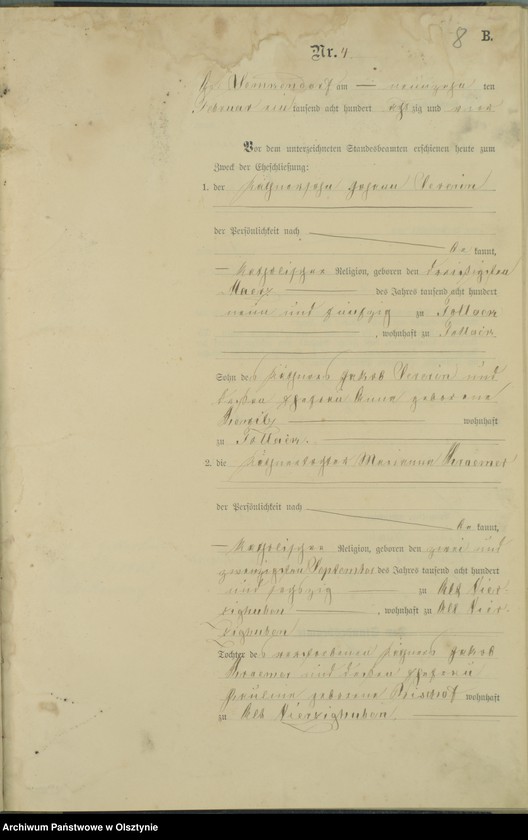 8 B.
Nr. 4
am — neunzehn ten
Februar ein tausend acht hundert achtzig und
Vor dem unterzeichneten Standesbeamten erschienen heute zum
Zweck der Eheschließung:
1. der Käthnersohn Johann
der Persönlichkeit nach
be kannt,
— katholischer Religion, geboren den dreißigsten
Maerz des Jahres tausend acht hundert
neun und fünfzig zu Tollack
, wohnhaft zu Tollack
Sohn des Käthners Jakob und
dessen Ehefrau Anna geborene
wohnhaft
zu Tollack.
2. die Käthnertochter Marianna Kraemer
der Persönlichkeit nach
be kannt,
— katholischer Religion, geboren den zwei und
zwanzigsten September des Jahres tausend acht hundert
und sechszig zu Alt Vier-
zighuben , wohnhaft zu Alt Vier-
zighuben
Tochter des verstorbenen Käthners Jakob
Kraemer und dessen Ehefrau
Pauline geborene Bischof wohnhaft
zu Alt Vierzighuben.
Archiwum Państwowe w Olsztynie